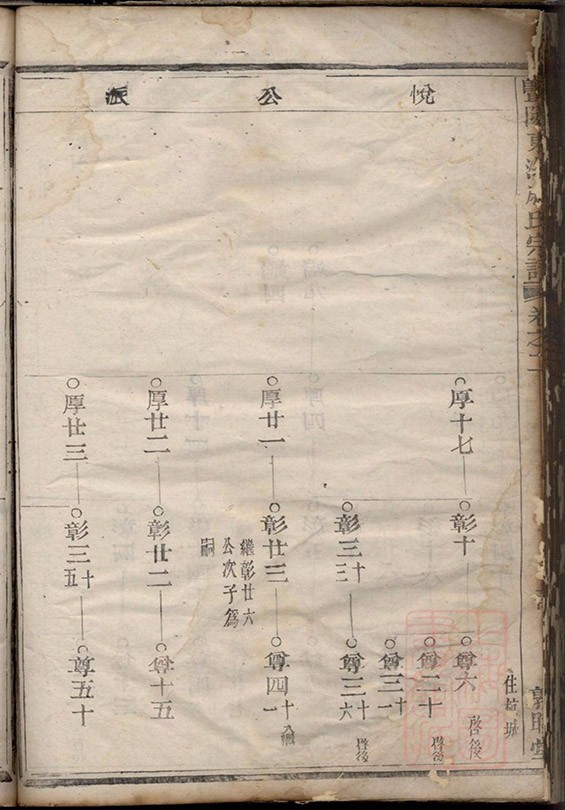 悅公派
厚十七
彰十
尊六 啓後
住杭城
尊二十 啓後
尊三十一
彰三十三
尊三十六 啓後
厚廿一
彰廿三
繼彰廿六
公次子爲
嗣
尊四十一
厚廿二
彰廿二
尊十五
厚廿三
彰三十五
尊五十
氏宗譜 卷之